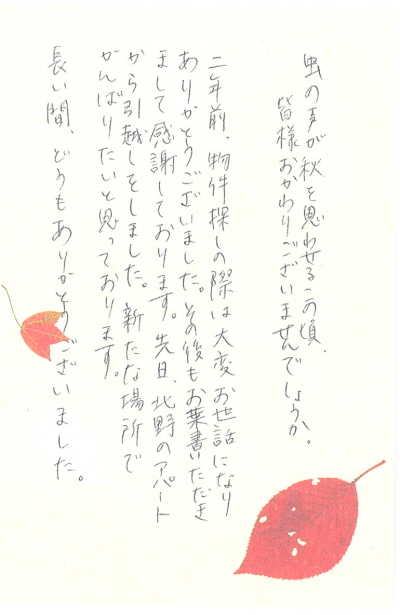 虫の声が秋を思わせるこの頃、
皆様おかわりございませんでしょうか。
二年前、物件探しの際は大変お世話になり
ありがとうございました。その後もお葉書いただき
まして感謝しております。先日、北野のアパート
から引越しをしました。新たな場所で
がんばりたいと思っております。
長い間、どうもありがとうございました。